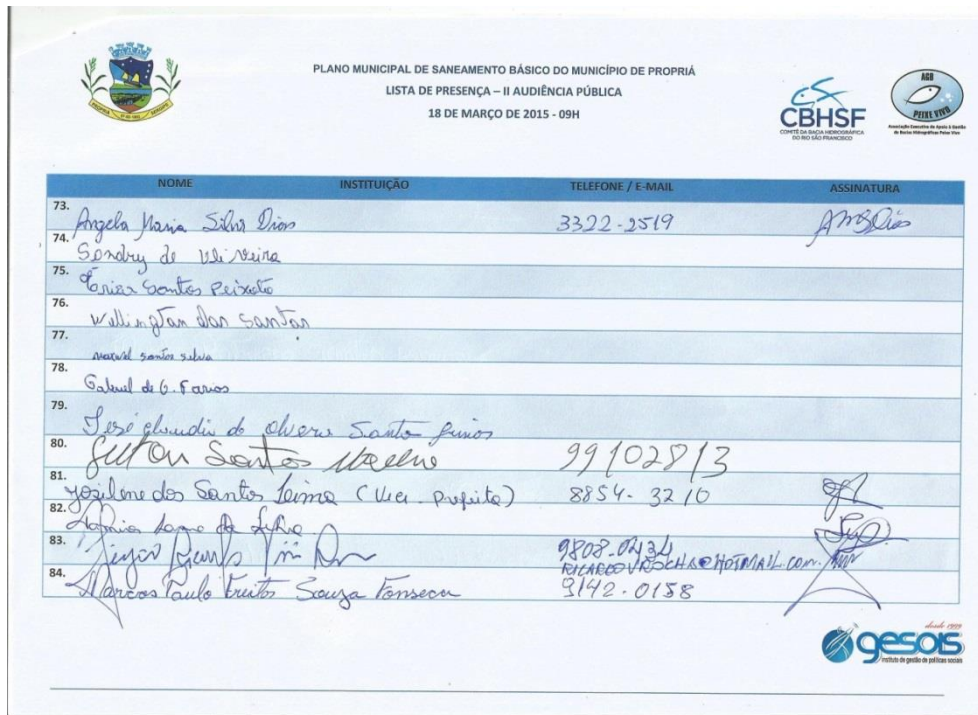 PLANO MUNICIPAL DE SANEAMENTO BÁSICO DO MUNICÍPIO DE PROPRIÁ
LISTA DE PRESENÇA – II AUDIÊNCIA PÚBLICA
18 DE MARÇO DE 2015 - 09H
CBHSF
COMITÊ DA BACIA HIDROGRÁFICA
DO RIO SÃO FRANCISCO
AGB
PEIXE VIVO
Associação Executiva de Apoio à Gestão
de Bacias Hidrográficas Peixe Vivo
NOME INSTITUIÇÃO TELEFONE / E-MAIL ASSINATURA
73. Angela Maria Silva Dias 3322-2519 AMSDias
74. de
75. Santos Peixoto
76. Wellington dos santos
77. santos silva
78. Gabriel de G. Farias
79. José de Santo
80. Santos 99102813
81. Josilene dos Santos Lima (Vice-prefeita) 8854-3210
82.
83. 9808-0434
RICARDOVROCHA@HOTMAIL.COM
84. Marcos Paulo Freitos Souza Fonseca 9142-0158
desde 1999
gesois
instituto de gestão de políticas sociais